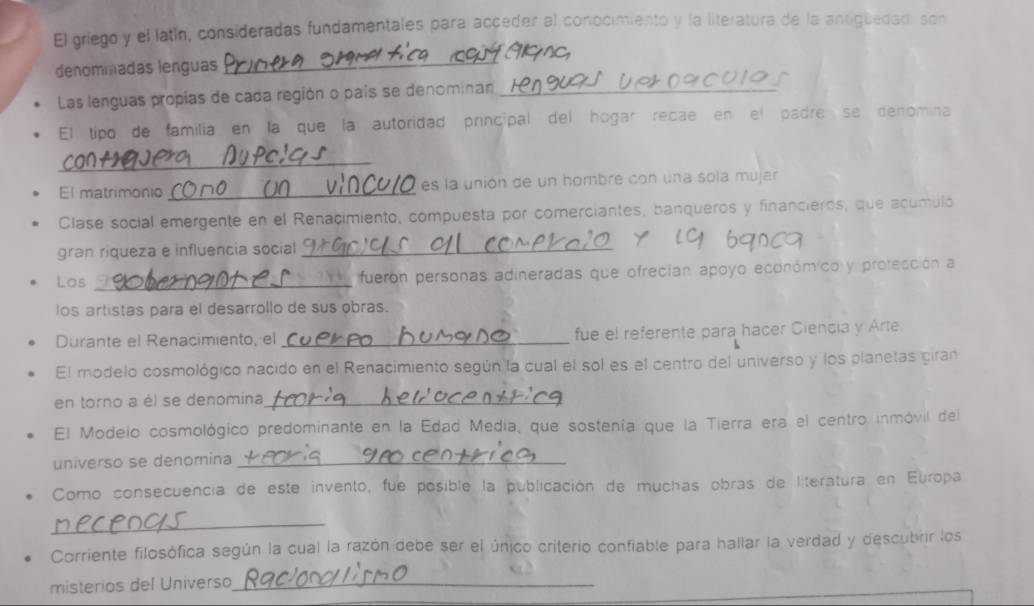 El griego y el latín, consideradas fundamentales para acceder al conocimiento y la literatura de la antigüedad, son
denominadas lenguas Primera gramatica castellana
• Las lenguas propias de cada región o país se denominan lenguas vernaculas
• El tipo de familia en la que la autoridad principal del hogar recae en el padre se denomina
contrayera nupcias
• El matrimonio como un vinculo es la unión de un hombre con una sola mujer
• Clase social emergente en el Renacimiento, compuesta por comerciantes, banqueros y financieros, que acumuló
gran riqueza e influencia social gracias al comercio y la banca
• Los gobernantes fueron personas adineradas que ofrecían apoyo económico y protección a
los artistas para el desarrollo de sus obras.
• Durante el Renacimiento, el cuerpo humano fue el referente para hacer Ciencia y Arte.
• El modelo cosmológico nacido en el Renacimiento según la cual el sol es el centro del universo y los planetas giran
en torno a él se denomina teoria heliocentrica
• El Modelo cosmológico predominante en la Edad Media, que sostenía que la Tierra era el centro inmóvil del
universo se denomina teoria geocentrica
• Como consecuencia de este invento, fue posible la publicación de muchas obras de literatura en Europa
mecenas
• Corriente filosófica según la cual la razón debe ser el único criterio confiable para hallar la verdad y descubrir los
misterios del Universo Racionalismo